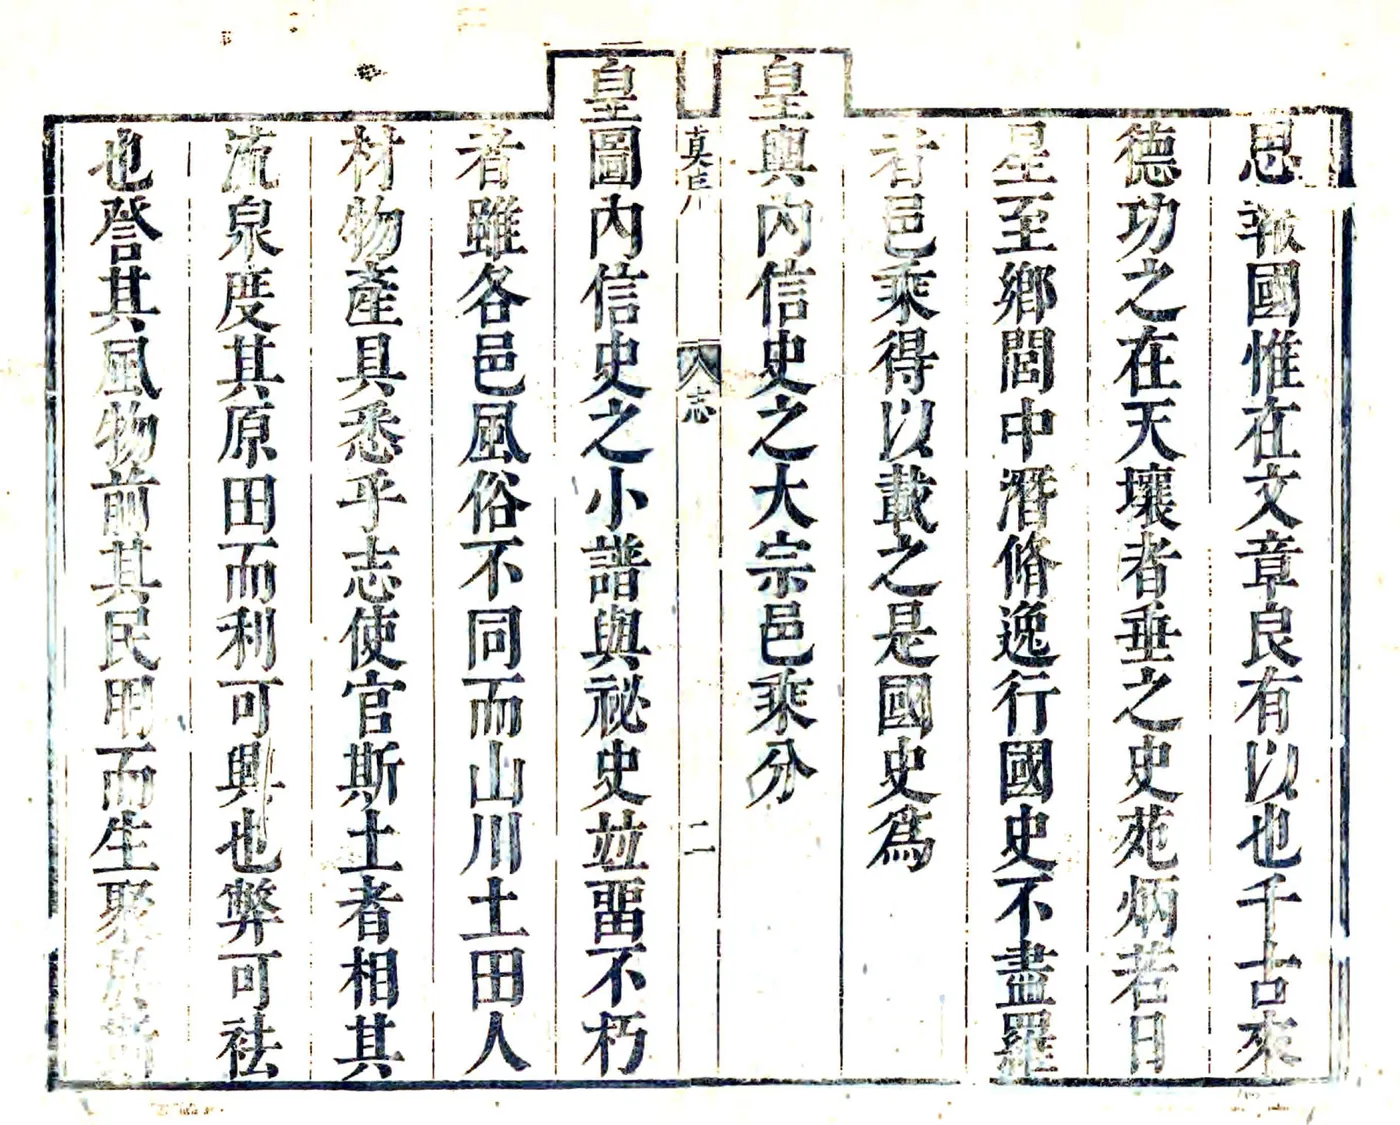 恩報國惟在文章良有以也千古來
德功之在天壤者垂之史苑炳若日
星至鄉閭中潛脩逸行國史不盡羅
者邑乘得以載之是國史為
皇輿內信史之大宗邑乘分
志
二
皇圖內信史之小譜與祕史並畱不朽
者雖各邑風俗不同而山川土田人
材物產具悉乎志使官斯土者相其
流泉度其原田而利可興也弊可祛
也詧其風物前其民用而生聚